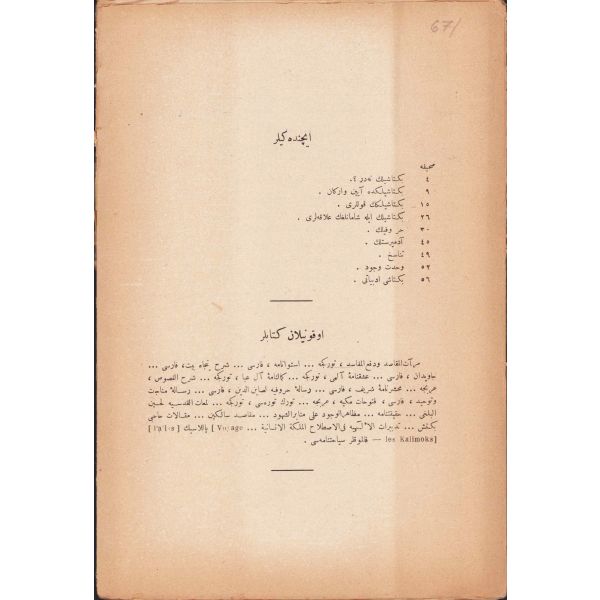 67/
ایچنده کیلر
صحیفه
٤ بکتاشیلك نه‌در ؟.
٩ بکتاشیلکده آیین وارکان .
١٥ بکتاشیلکك قوللری .
٢٦ بکتاشیلك ایله شامانلغك علاقه‌لری .
٣٠ حروفیلك .
٤٥ آدمپرستلك .
٤٩ تناسخ .
٥٢ وحدت وجود .
٥٦ بکتاشی ادبیاتی .
اوقونیلان کتابلر
مرآت المقاصد ودفع المفاسد ، تورکجه ... استوانامه ، فارسی ... شرح پنجاه بیت، فارسی ...
جاویدان ، فارسی ... عشقنامهٔ آلهی ، تورکجه ... کتابنامهٔ آل عبا ، تورکجه ... شرح الفصوص ،
عربجه ... محشرنامهٔ شریف ، فارسی ... رسالهٔ حروفیه لضیاء الدین ، فارسی ... رسالهٔ مناجات
وتوحید ، فارسی ، فتوحات مکیه ، عربجه ... تورك تورمسی ، تورکجه ... لمعات القدسیه لحسین
البلغی ... حقیقتنامه ... مظاهرالوجود علی منابرالشهود ... مقاصد سالکین ... مقالات حاجی
بکتاش ... تدبیرات الآلهیه فی الاصطلاح المملکة الانسانیة ... Voyage ] پالاسك [
les Kalimoks — قالموقلر سیاحتنامه‌سی .